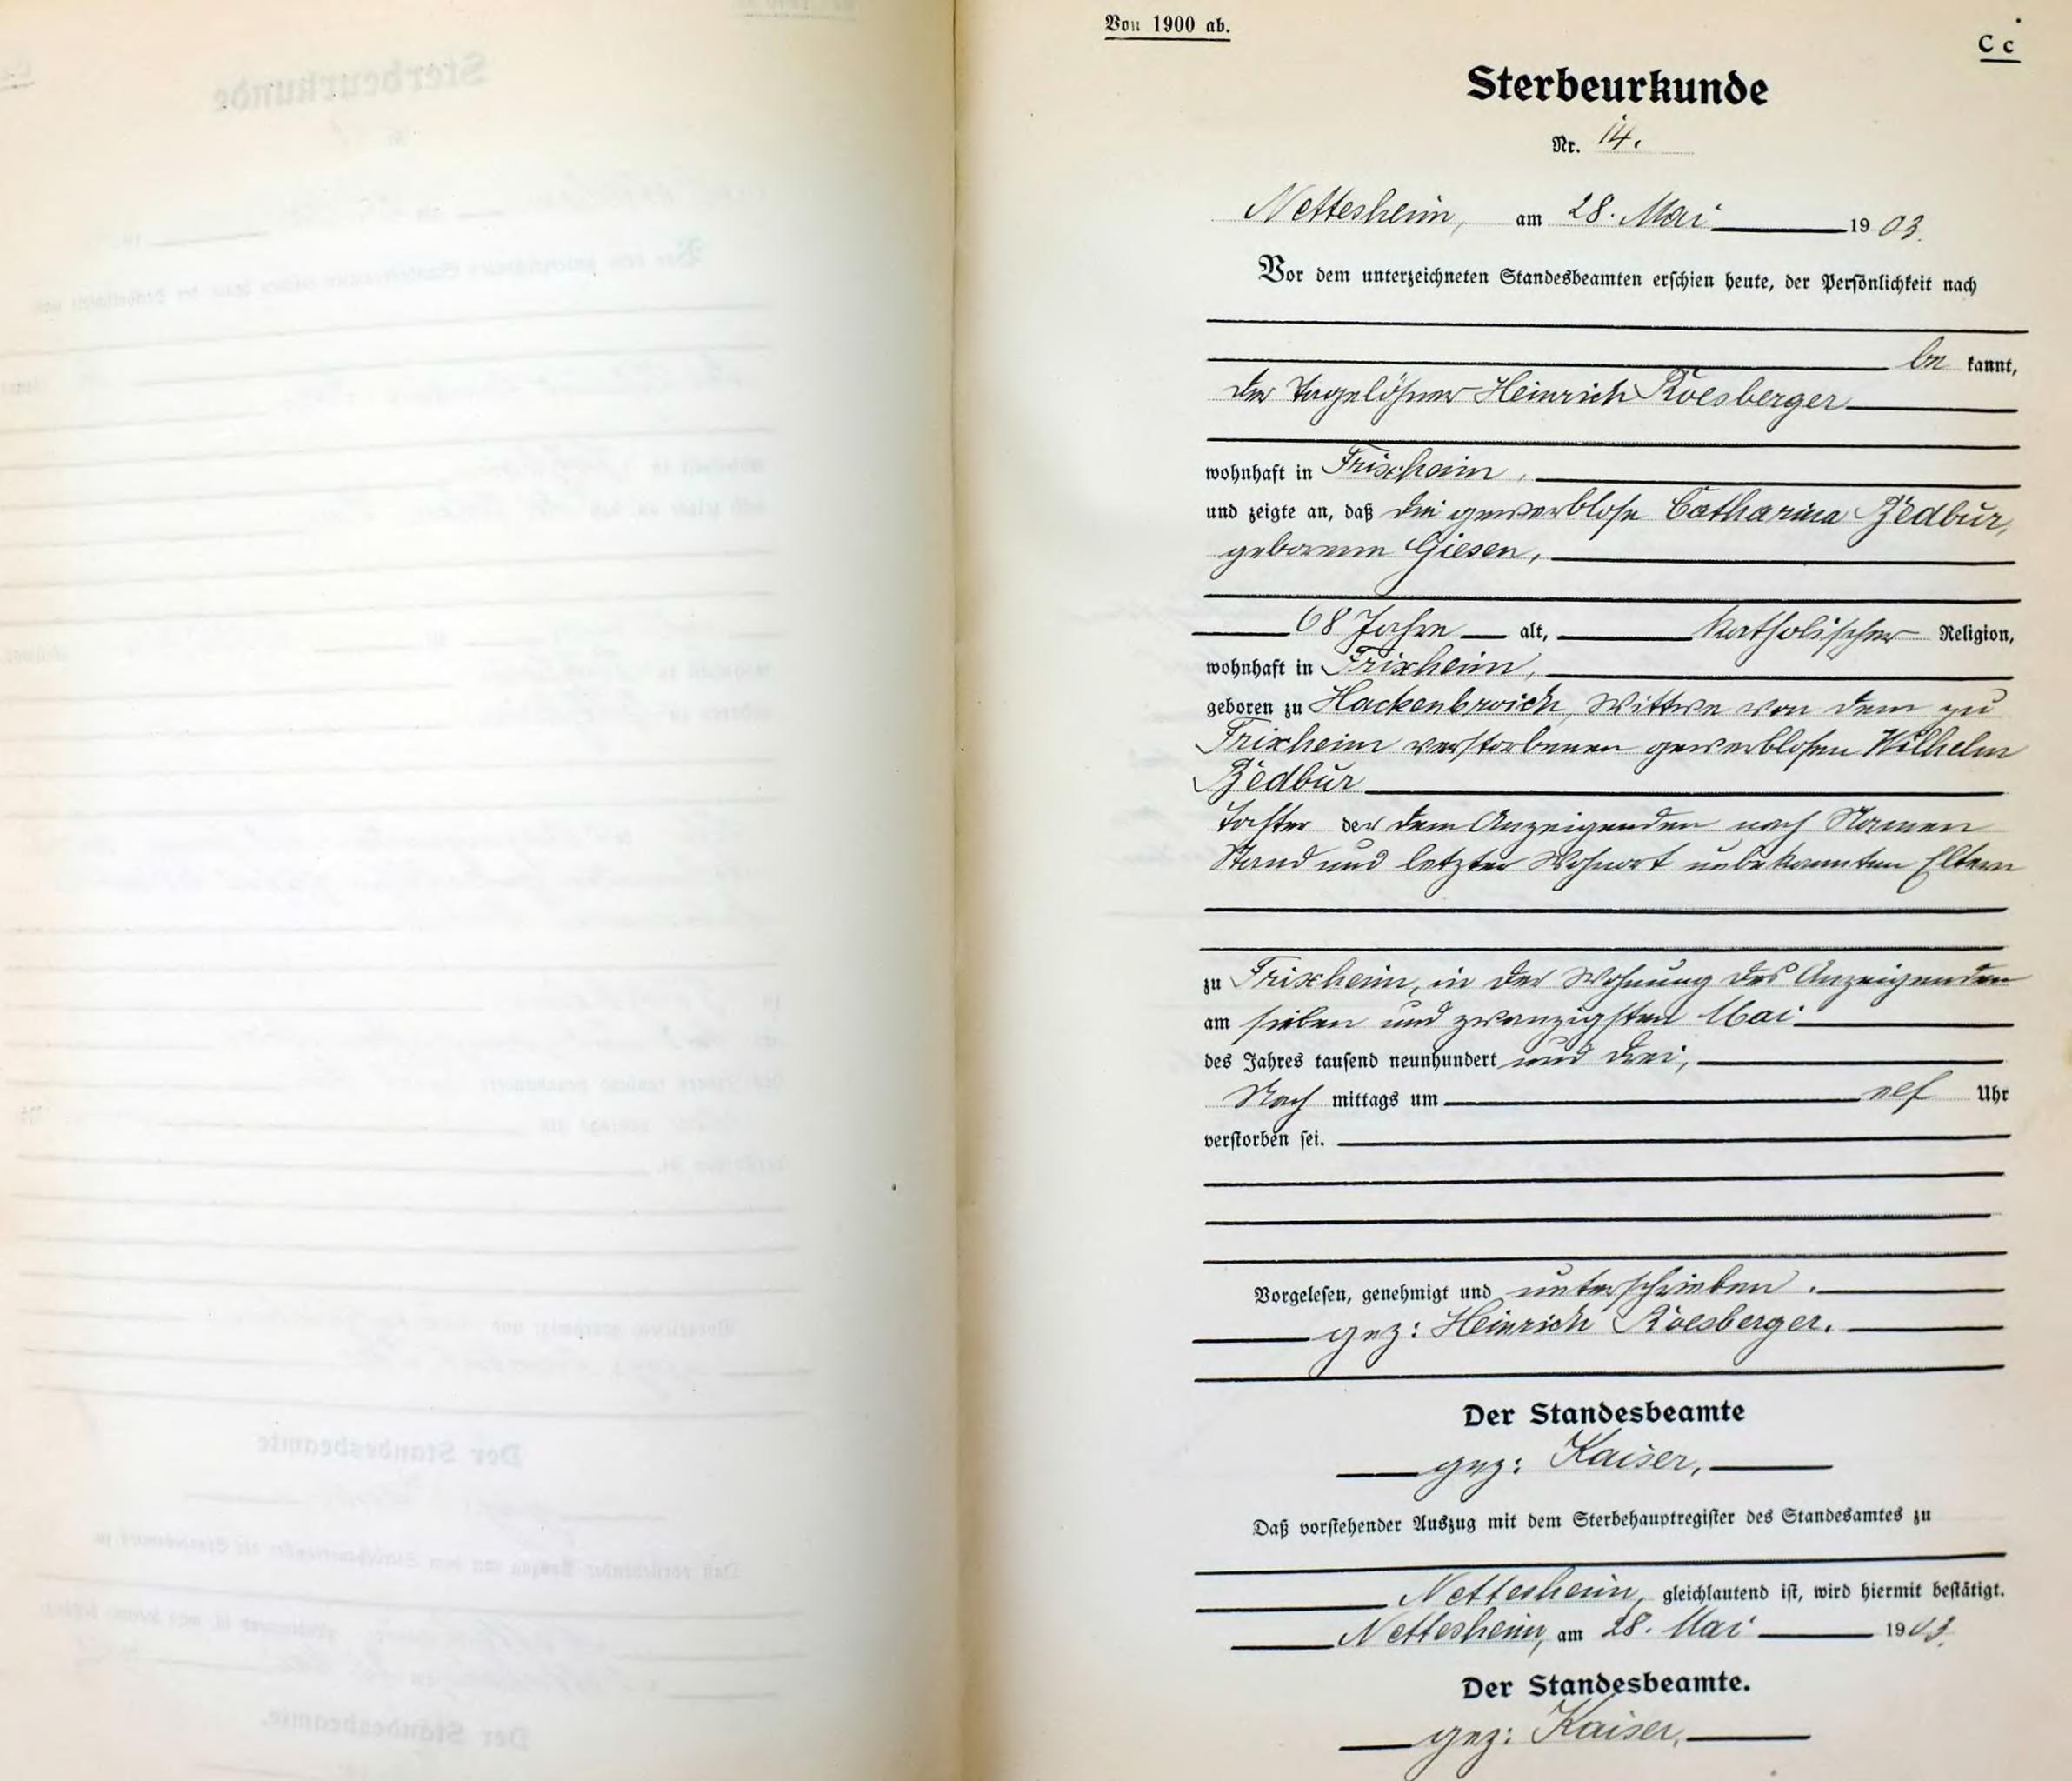 Von 1900 ab.
C c
Sterbeurkunde
Nr. 14.
Nettesheim, am 28. Mai 1903.
Vor dem unterzeichneten Standesbeamten erschien heute, der Persönlichkeit nach
be kannt,
der Tagelöhner Heinrich Roesberger
wohnhaft in Frixheim,
und zeigte an, daß die gewerblose Catharina Bedbur,
geborenen Giesen,
68 Jahre alt, katholischer Religion,
wohnhaft in Frixheim,
geboren zu Hackenbroich, Wittwe von dem zu
Frixheim verstorbenen gewerblosen Wilhelm
Bedbur
Tochter der dem Anzeigenden nach Namen
Stand und letzter Wohnort unbekannten Eltern
zu Frixheim, in der Wohnung des Anzeigenden
am sieben und zwanzigsten Mai
des Jahres tausend neunhundert und drei,
Nach mittags um elf Uhr
verstorben sei.
Vorgelesen, genehmigt und unterschrieben.
gez: Heinrich Roesberger.
Der Standesbeamte
gez: Kaiser,
Daß vorstehender Auszug mit dem Sterbehauptregister des Standesamtes zu
Nettesheim, gleichlautend ist, wird hiermit bestätigt.
Nettesheim, am 28. Mai 1903.
Der Standesbeamte.
gez: Kaiser,